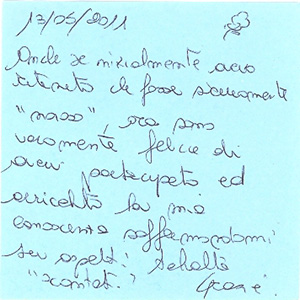 13/05/2011
Anche se inizialmente avevo
ritenuto che fosse sicuramente
"noioso", ora sono
veramente felice di
avervi partecipato ed
arricchito la mia
conoscenza soffermandomi
su aspetti talvolta
"scontati".
Grazie!